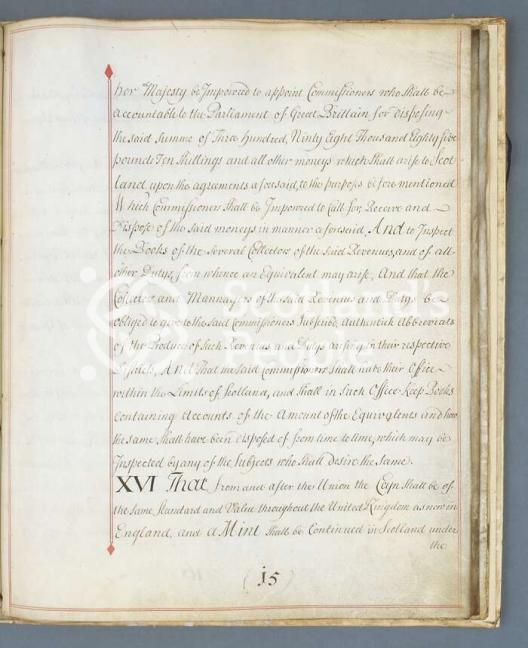 her Majesty be Impowred to appoint Commissioners who shall be
accountable to the Parliament of Great Brittain for disposing
the said Summe of Three hundred, Ninty Eight Thousand Eighty five
pounds Ten Shillings and all other moneys which shall arise to Scot
land upon the agreements aforesaid, to the purposes before mentioned
Which Commissioners shall be Impowred to Call for, Receive and
Dispose of the said moneys in manner aforesaid, And to Inspect
the Books of the several Collectors of the said Revenues, and of all
other Dutys, from whence an Equivalent may arise, And that the
Collectors and Mannagers of the said Revenues and Dutys be
obliged to give to the said Commissioners Subscrived Authentick Abbreviats
of the Produce of such Revenues and Dutys arising in their respective
Districts, And That the said Commissioners shall have their Office
within the Limits of Scotland, and shall in such Office keep Books
containing Accounts of the Amount of the Equivalents and how
the same shall have been disposed of from time to time, which may be
Inspected by any of the Subjects who shall desire the same.
XVI That from and after the Union the Coyn shall be of
the same Standard and Value throughout the United Kingdom as now in
England, and a Mint shall be Continued in Scotland under
the
(15)
Scotland's
People